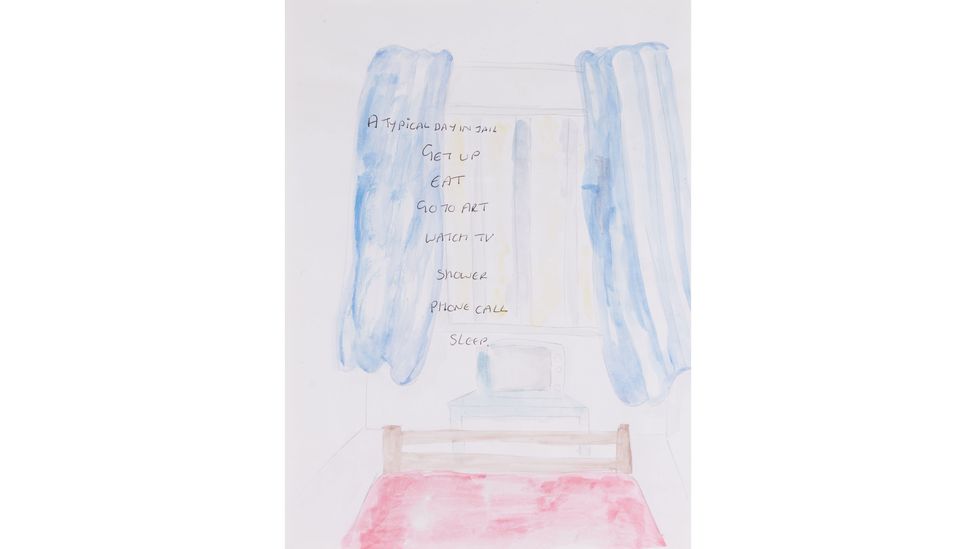 A TYPICAL DAY IN JAIL
GET UP
EAT
GO TO ART
WATCH TV
SHOWER
PHONE CALL
SLEEP.